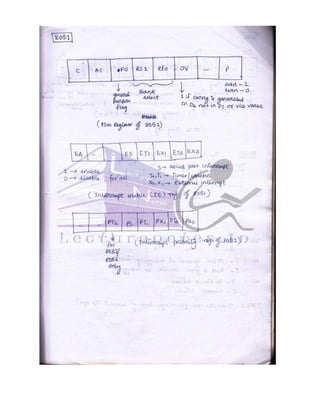 8051
C AC FO RS1 RS0 OV — P
general purpose flag
Bank select
1 if carry is generated in D6 not in D7 or vice versa
odd - 1
even - 0
(Flag register of 8051)
EA - - ES ET1 EX1 ET0 EX0
1 → enable
0 → disable for all
S → serial port interrupt
T0, T1 → Timer/counter
X0, X1 → External interrupt
(Interrupt enable (IE) reg. of 8051)
- - PT2 PS PT1 PX1 PT0 PX0
for
8052
only
(Interrupt priority reg. of 8051)